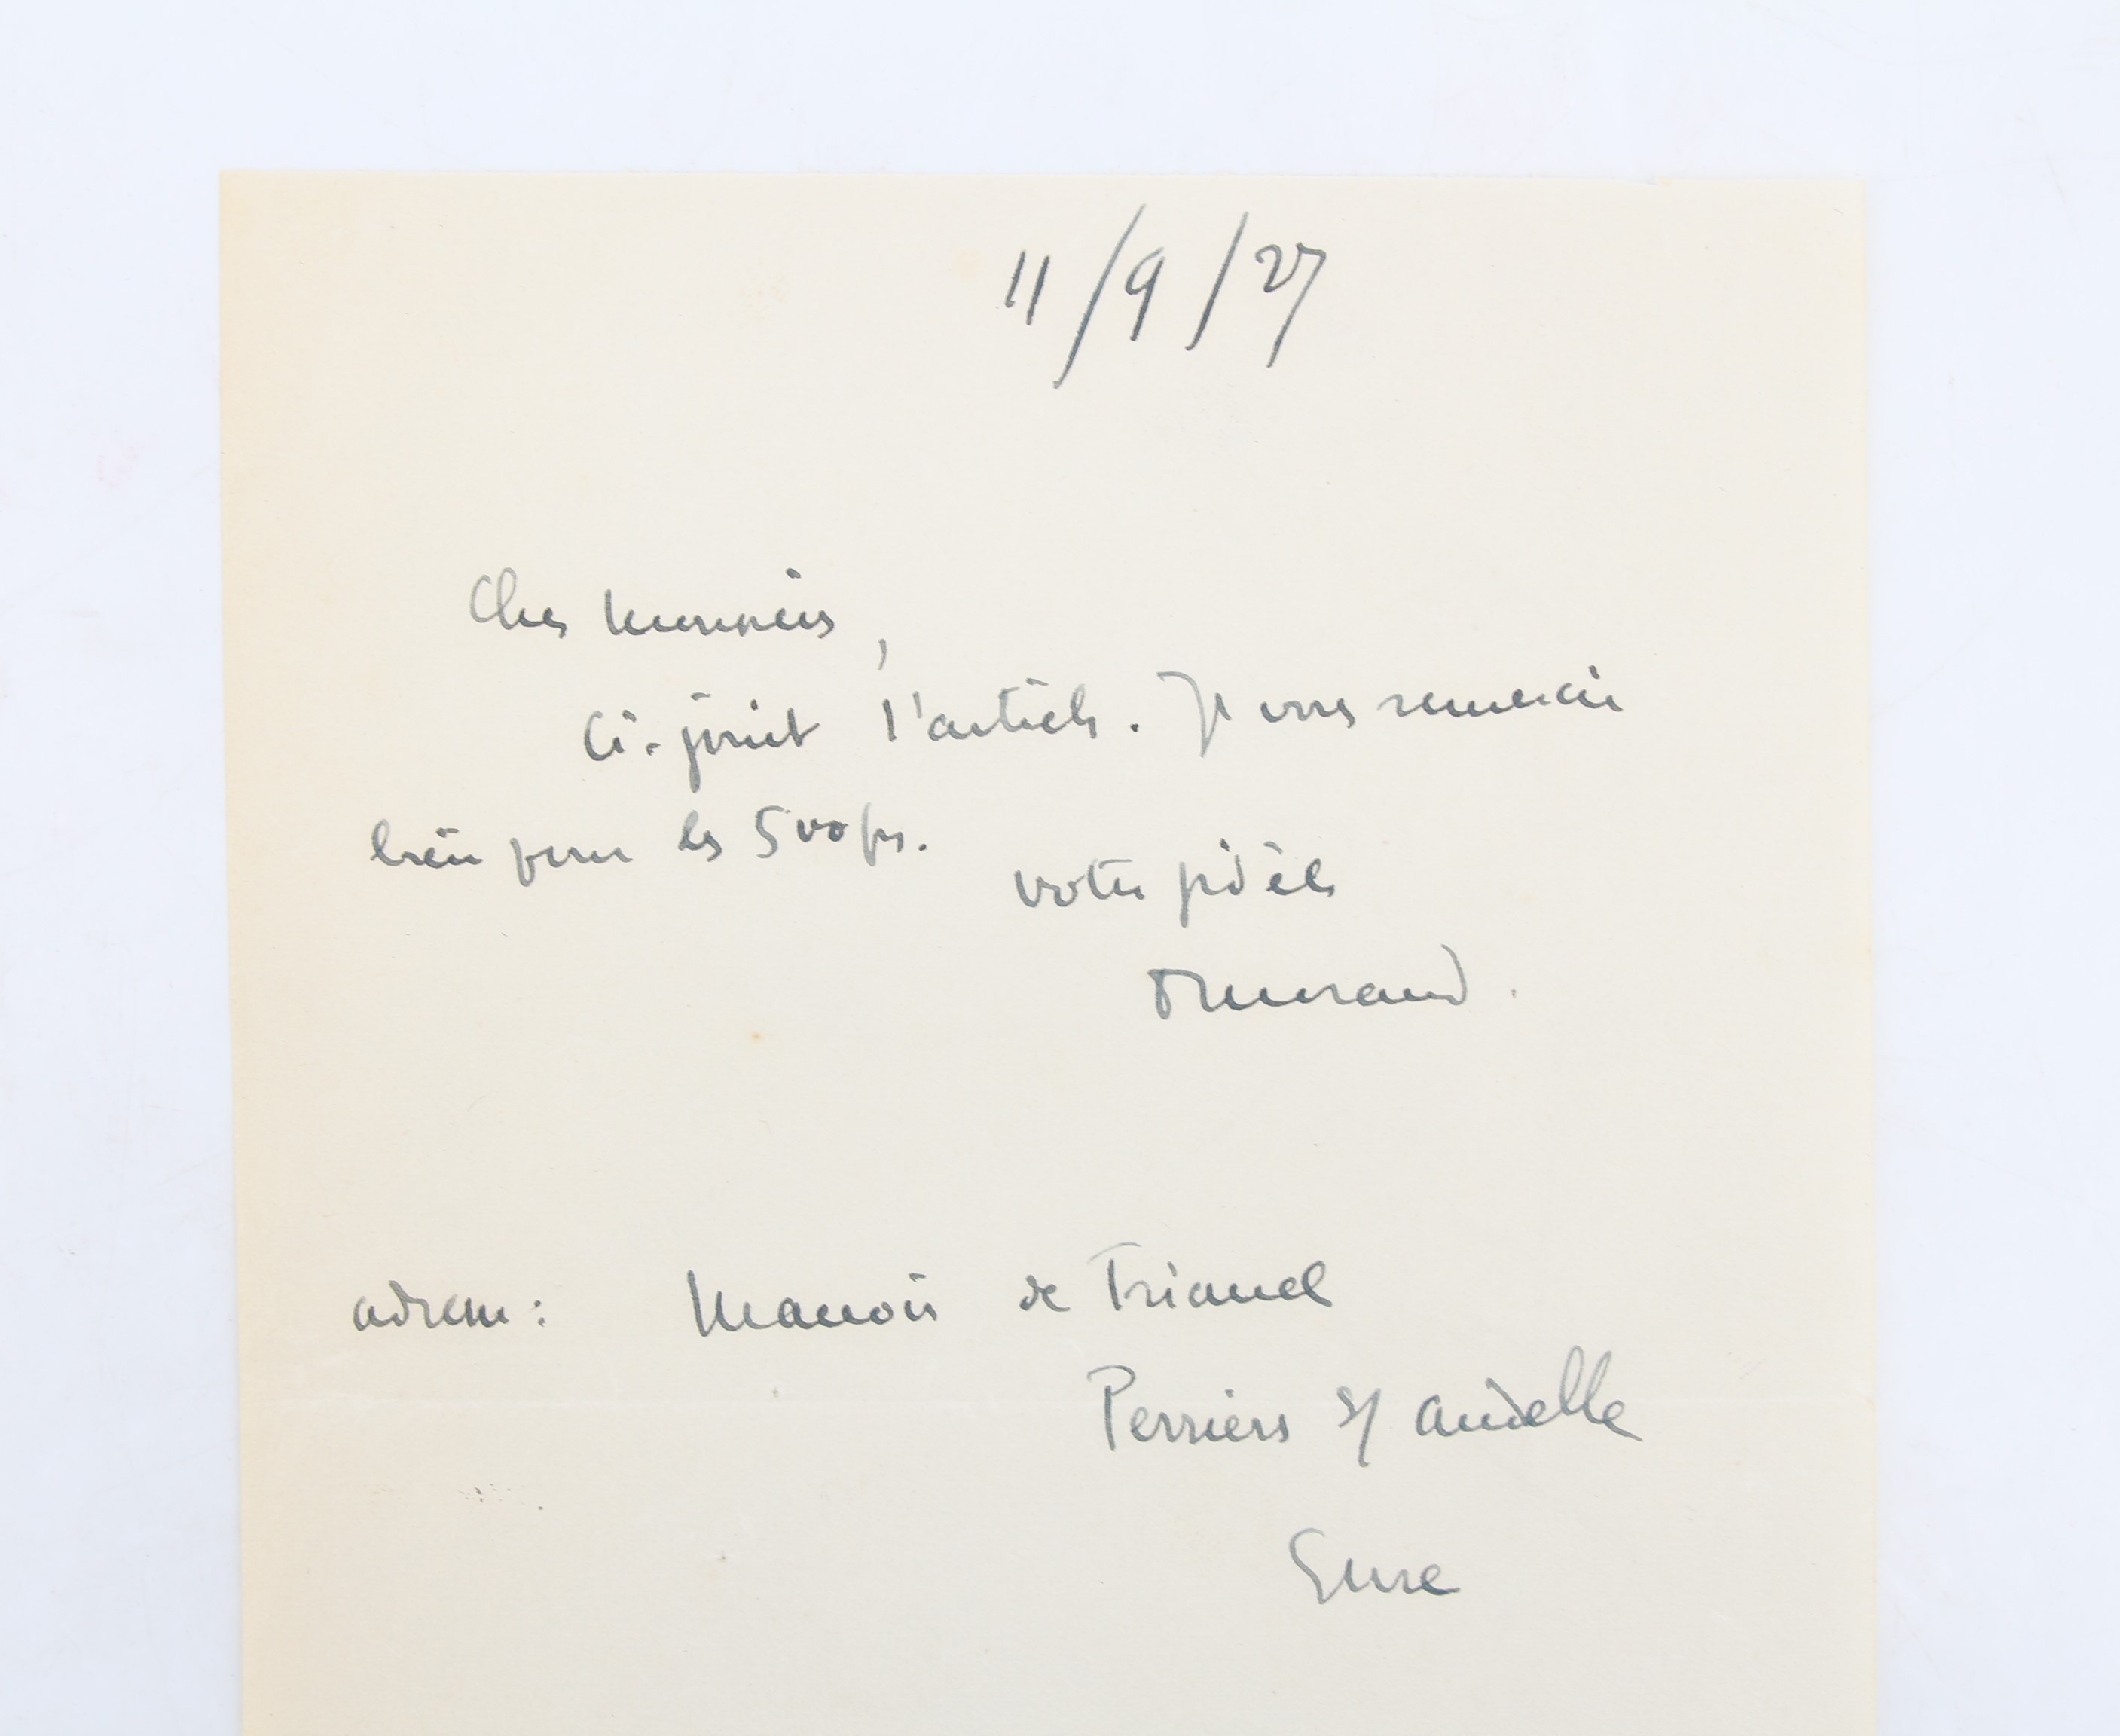 11/9/27
Cher Monsieur,
Ci-joint l'article. Je vous remercie
bien pour les 500 frs.
votre fidèle
PMorand.
adresse: Manoir de Trianel
Perriers s/ Andelle
Eure